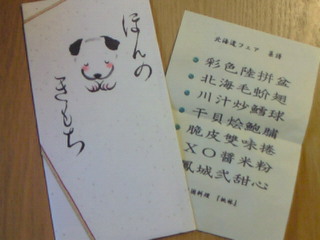 ほんの
きもち
北海道フェア
彩色陸拼盆
北海毛蚧翅
川汁炒鱈球
干貝烩鮑脯
脆皮雙味捲
XO醬米粉
鳳城弍甜心